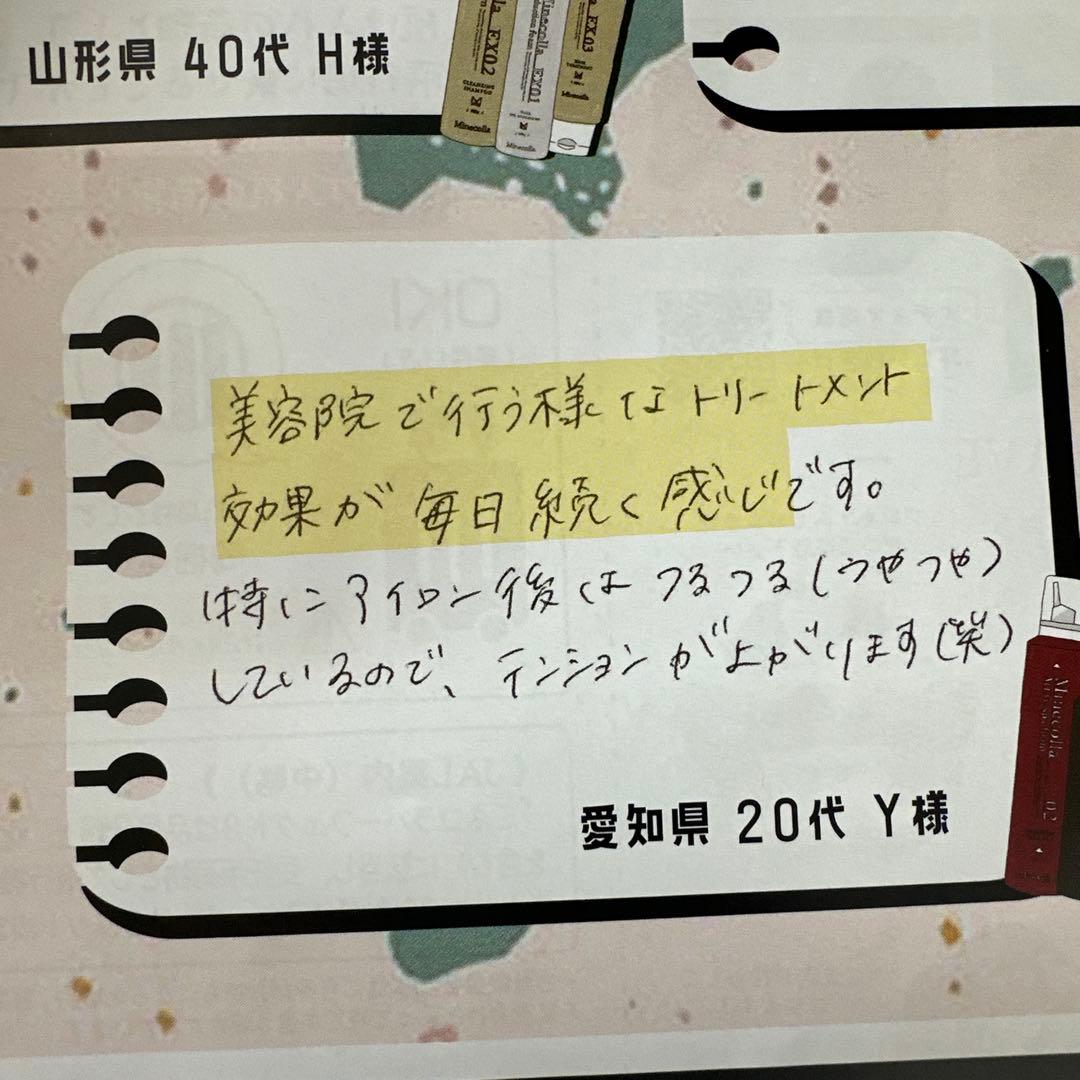 山形県 40代 H様
EX02
CLEANSING
SHAMPOO
Minecolla
EX01
Minecolla
EX03
美容院で行う様なトリートメント
効果が毎日続く感じです。
特にアイロン後はつるつる(つやつや)
しているので、テンションが上がります(笑)
愛知県 20代 Y様
Minecolla
02